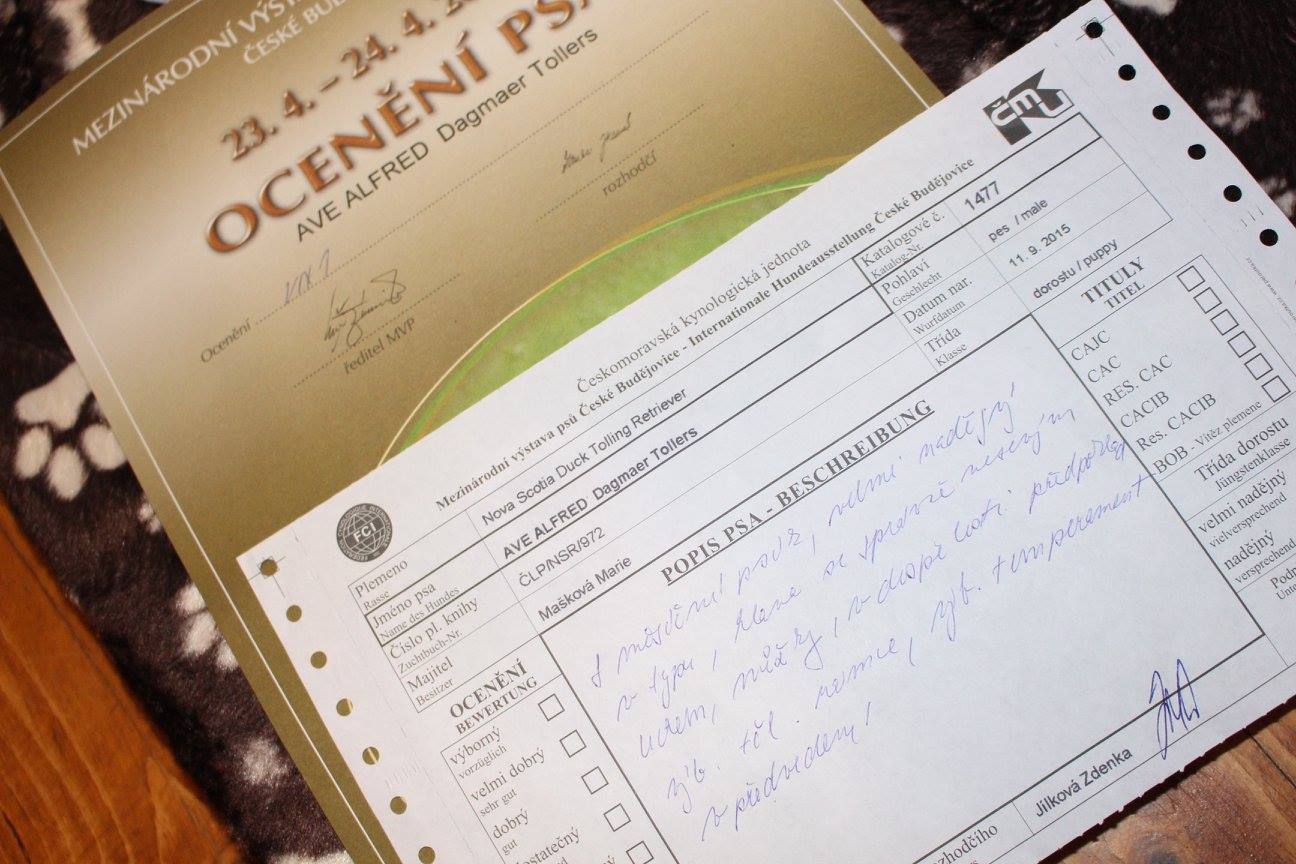 MEZINÁRODNÍ VÝST
ČESKÉ BUD
23. 4. – 24. 4. 20
OCENĚNÍ PSA
AVE ALFRED Dagmaer Tollers
Ocenění
ředitel MVP
rozhodčí
ČMKU
FCI
Českomoravská kynologická jednota
Mezinárodní výstava psů České Budějovice - Internationale Hundeausstellung České Budějovice
Plemeno
Rasse
Nova Scotia Duck Tolling Retriever
Jméno psa
Name des Hundes
AVE ALFRED Dagmaer Tollers
Číslo pl. knihy
Zuchtbuch-Nr.
ČLP/NSR/972
Majitel
Besitzer
Mašková Marie
Katalogové č.
Katalog-Nr.
1477
Pohlaví
Geschlecht
pes / male
Datum nar.
Wurfdatum
11. 9. 2015
Třída
Klasse
dorostu / puppy
OCENĚNÍ
BEWERTUNG
výborný
vorzüglich
velmi dobrý
sehr gut
dobrý
gut
statečný
POPIS PSA - BESCHREIBUNG
měsíční velmi nadějný
v typu, hlava se správně neseným
uchem,
zyb. tempérament
v předvedení!
TITULY
TITEL
CAJC
CAC
RES. CAC
CACIB
Res. CACIB
BOB - Vítěz plemene
Třída dorostu
Jüngstenklasse
velmi nadějný
vielversprechend
nadějný
versprechend
Podp
Unter
ozhodčího
Jilková Zdenka